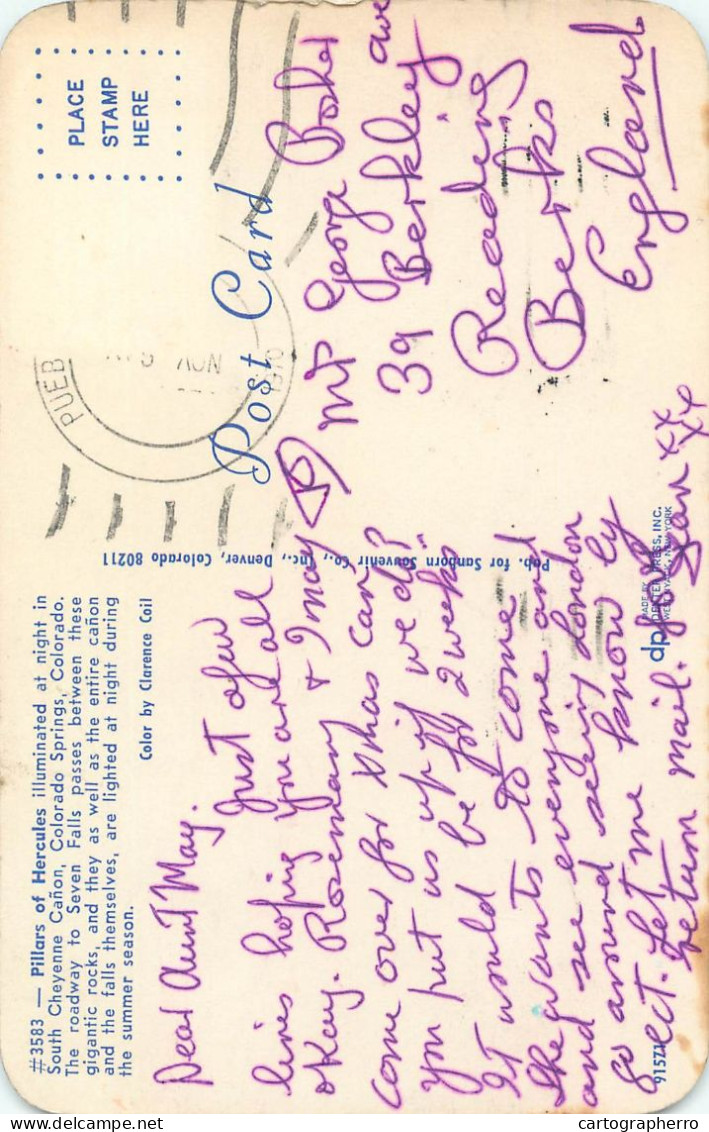 #3583 — Pillars of Hercules illuminated at night in
South Cheyenne Cañon, Colorado Springs, Colorado.
The roadway to Seven Falls passes between these
gigantic rocks, and they as well as the entire cañon
and the falls themselves, are lighted at night during
the summer season.
Color by Clarence Coil
Dear Aunt May.
Just a few
lines hoping you are all
okay. Rosemary & I may
come over for Xmas can
you put us up if we do?
It would be for 2 weeks
she wants to come
and see everyone and
go around seeing London
ect. Let me know by
return mail.
xx
xx
91574
Pub. for Sanborn Souvenir Co., Inc., Denver, Colorado 80211
MADE BY
dp DEXTER PRESS, INC.
WEST NYACK, NEW YORK
Post Card
PLACE
STAMP
HERE
PUEB
NOV
Mr George
39 Berkley ave
Reading
Berks
England
cartographerro